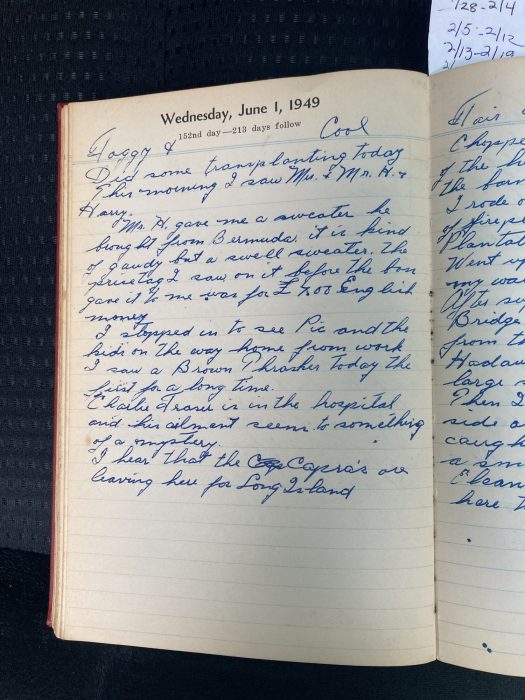 128-2/4
2/5-2/12
2/13-2/19
Wednesday, June 1, 1949
152nd day—213 days follow
Foggy & Cool
Did some transplanting today
This morning I saw Mrs. & Mr. H. &
Harry.
Mr. H. gave me a sweater he
brought from Bermuda. it is kind
of gaudy but a swell sweater. the
price tag I saw on it before the boss
gave it to me was for £ 7.00 English
money
I stopped in to see Pic and the
kids on the way home from work
I saw a Brown Thrasher today the
first for a long time.
Charlie is in the hospital
and his ailment seem to something
of a mystery.
I hear that the Capra's are
leaving here for Long Island
Fair
Choppe
of the
the bar
I rode o
of firep
Plantat
Went up
my wa
After su
Bridge
from th
Hadaw
large
Then I
side a
caugh
a sm
Clean
here